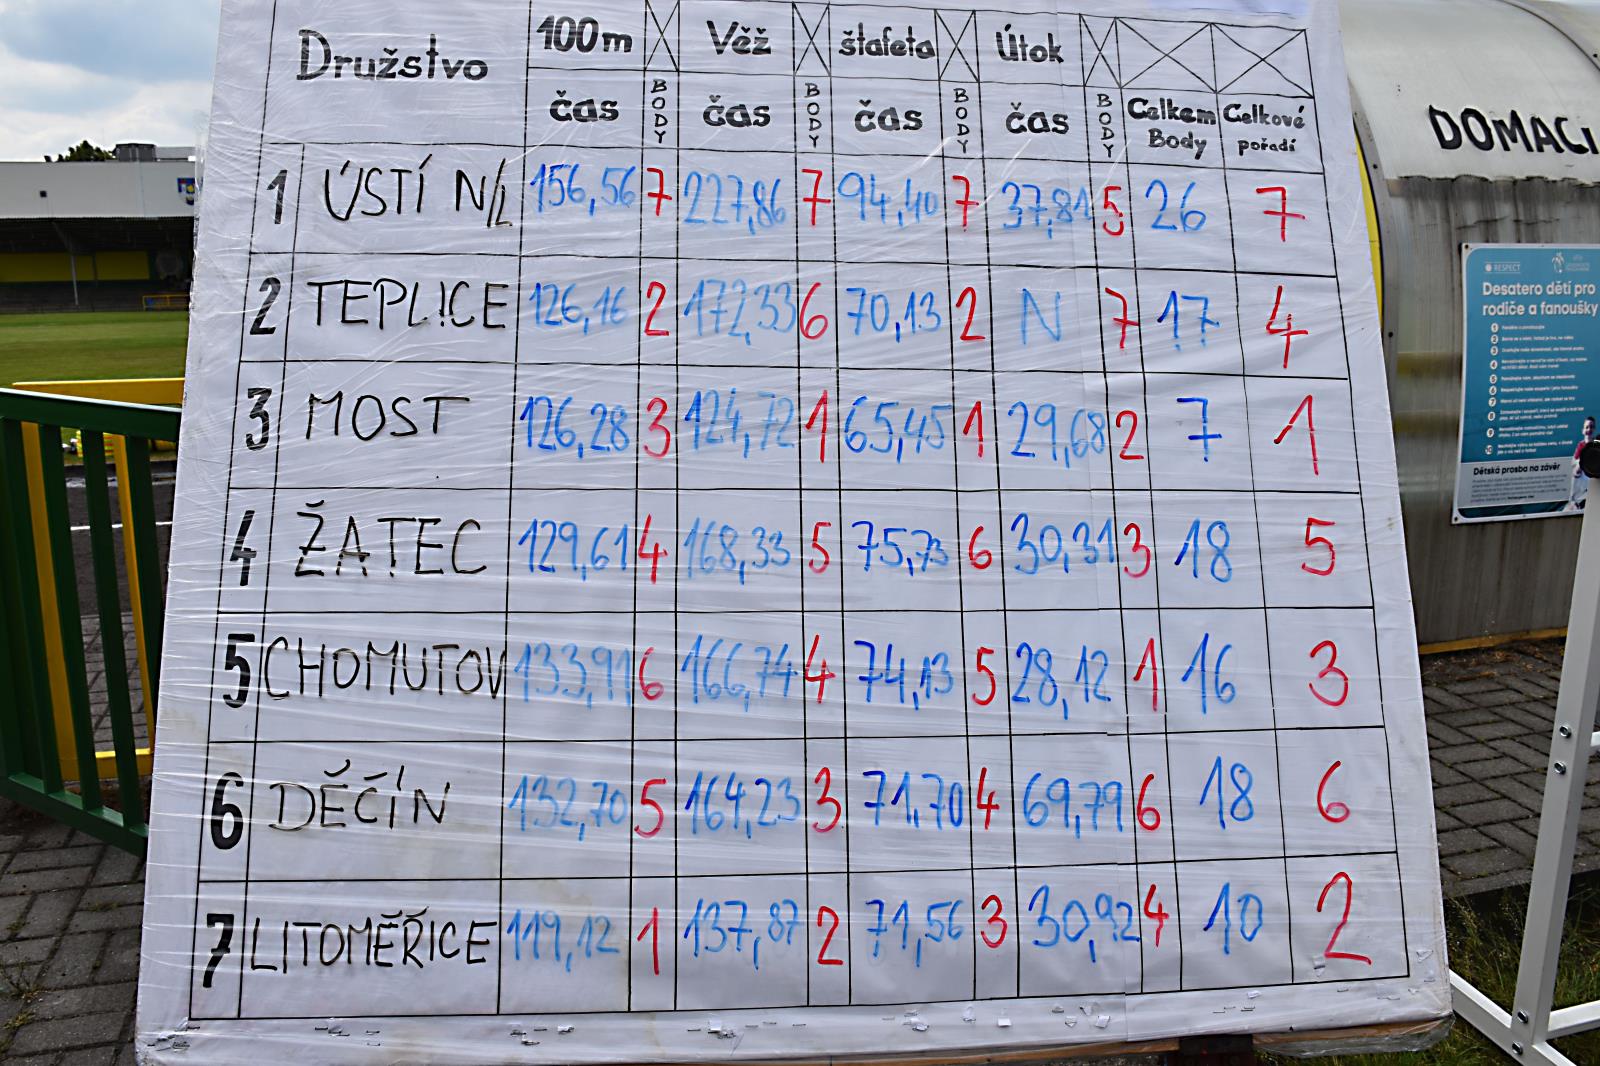 Družstvo 100m Věž štafeta Útok
čas BODY čas BODY čas BODY čas BODY Celkem Body Celkové pořadí
1 ÚSTÍ N/L 156,56 7 227,86 7 94,40 7 37,81 5 26 7
2 TEPLICE 126,16 2 172,33 6 70,13 2 N 7 17 4
3 MOST 126,28 3 124,72 1 65,45 1 29,68 2 7 1
4 ŽATEC 129,61 4 168,33 5 75,73 6 30,31 3 18 5
5 CHOMUTOV 133,91 6 166,74 4 74,13 5 28,12 1 16 3
6 DĚČÍN 132,70 5 164,23 3 71,70 4 69,79 6 18 6
7 LITOMĚŘICE 119,12 1 137,87 2 71,56 3 30,92 4 10 2
DOMACI
RESPECT
Desatero dětí pro
rodiče a fanoušky
1
2
3
4
5
6
7
8
9
10
Dětská prosba na závěr